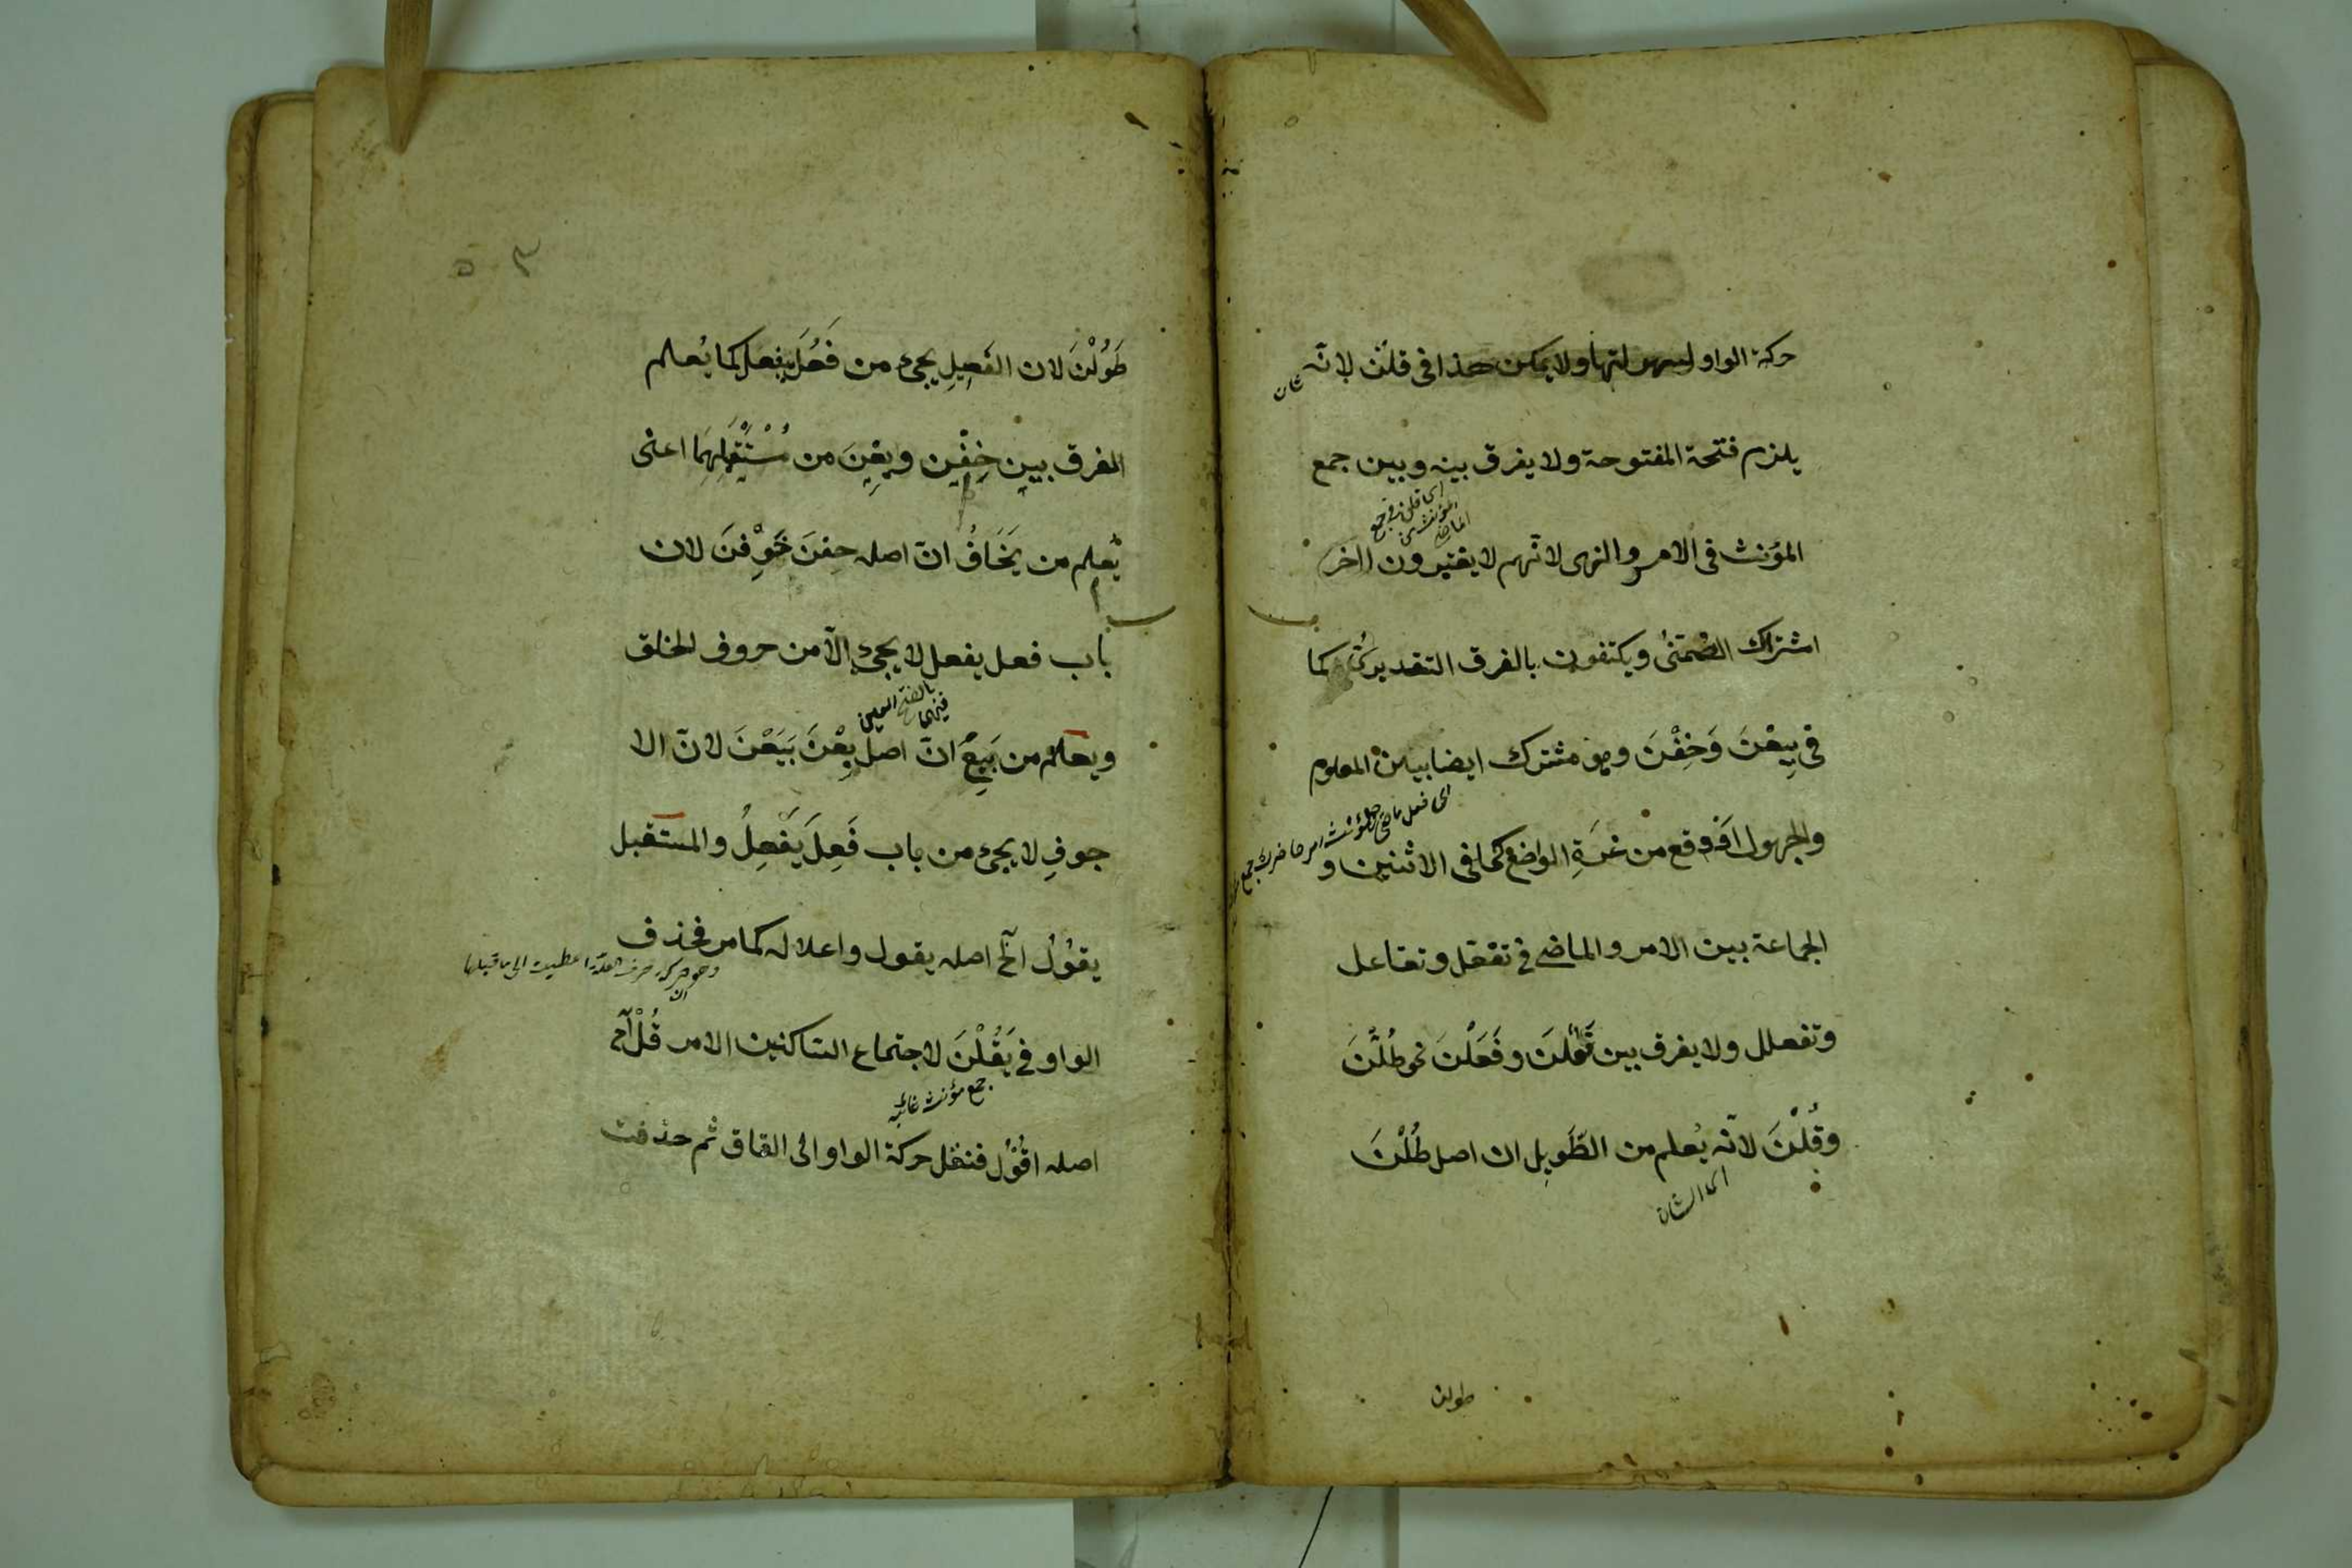 حركة الواو لسهولتها ولا يمكن هذا فى قلن لانّه
يلزم فتحة المفتوحة ولا يفرق بينه وبين جمع
المؤنث فى الامر والنهى لانّهم لا يعتبرون
اشتراك الضمنىُ ويكتفون بالفرق التقديرى كما
فى بِيعْنَ وَخِفْنَ وهو مشترك ايضا بين المعلوم
والمجهول او وقع من غرّةِ الواضع كما فى الاثنين و
الجماعة بين الامر والماضى فى تفعّل وتفاعل
وتفعلل ولا يفرق بين فَعُلنَ وفَعَلْنَ نحو طُلْنَ
وقُلْنَ لانّه يُعلم من الطّوِيل ان اصل طُلْنَ
اى الشان
طولن
طَوُلْنَ لان الفَعِيلِ يجئ من فَعُلَ يفعل كما يُعلم
الفرق بين خِفْنِ وبِعْنَ من مُسْتَقْبَلِهِمَا اعنى
يُعلم من يَخَافُ انّ اصله خفنَ خَوِفنَ لان
باب فعل يفعل لا يجئ الّا من حروف الحلق
ويعلم من يَبِيعُ انّ اصل بِعْنَ بَيَعْنَ لانّ الا
جوفِ لا يجئ من باب فَعِلَ يَفْعِلُ والمستقبل
يقوُلُ آلخ اصله يقول واعلاله كما مر فحذف
الواو فى يَقُلْنَ لاجتماع الساكنين الامر قُلْ آلخ
جمع مؤنث غائبه
اصله اقوُل فنقل حركة الواو الى القاف ثم حذفت